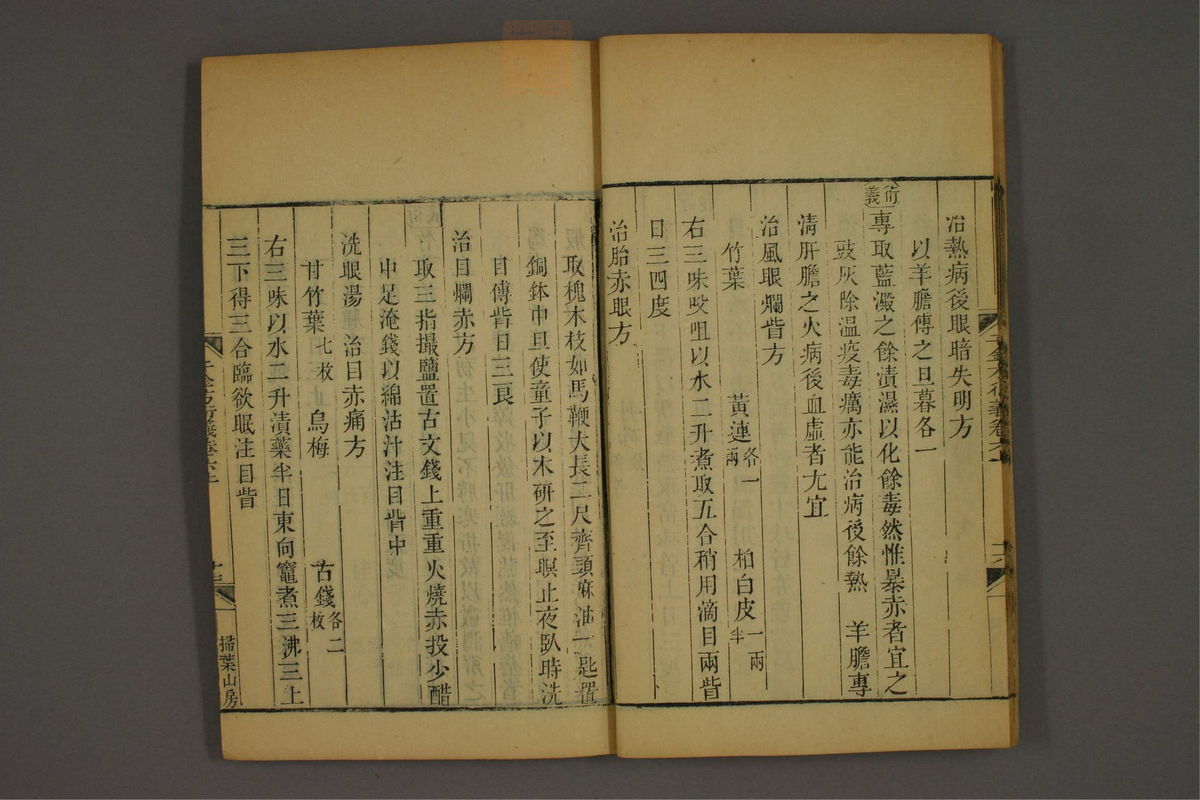 治熱病後眼暗失明方
以羊膽傅之旦暮各一
衍義專取藍澱之餘漬濕以化餘毒然惟暴赤者宜之
豉灰除温疫毒癘亦能治病後餘熱 羊膽專
清肝膽之火病後血虛者尤宜
治風眼爛眥方
竹葉 黃連各一兩 柏白皮一兩半
右三味㕮咀以水二升煮取五合稍用滴目兩眥
日三四度
治胎赤眼方
取槐木枝如馬鞭大長二尺齊頭麻油一匙置
銅鉢中旦使童子以木研之至暝止夜臥時洗
目傅眥日三良
治目爛赤方
取三指撮鹽置古文錢上重重火燒赤投少醋
中足淹錢以綿沾汁注目眥中
洗眼湯 治目赤痛方
甘竹葉七枚 烏梅 古錢各二枚
右三味以水二升漬藥半日東向竈煮三沸三上
三下得三合臨欲眠注目眥
千金方衍義卷六上 十七 掃葉山房